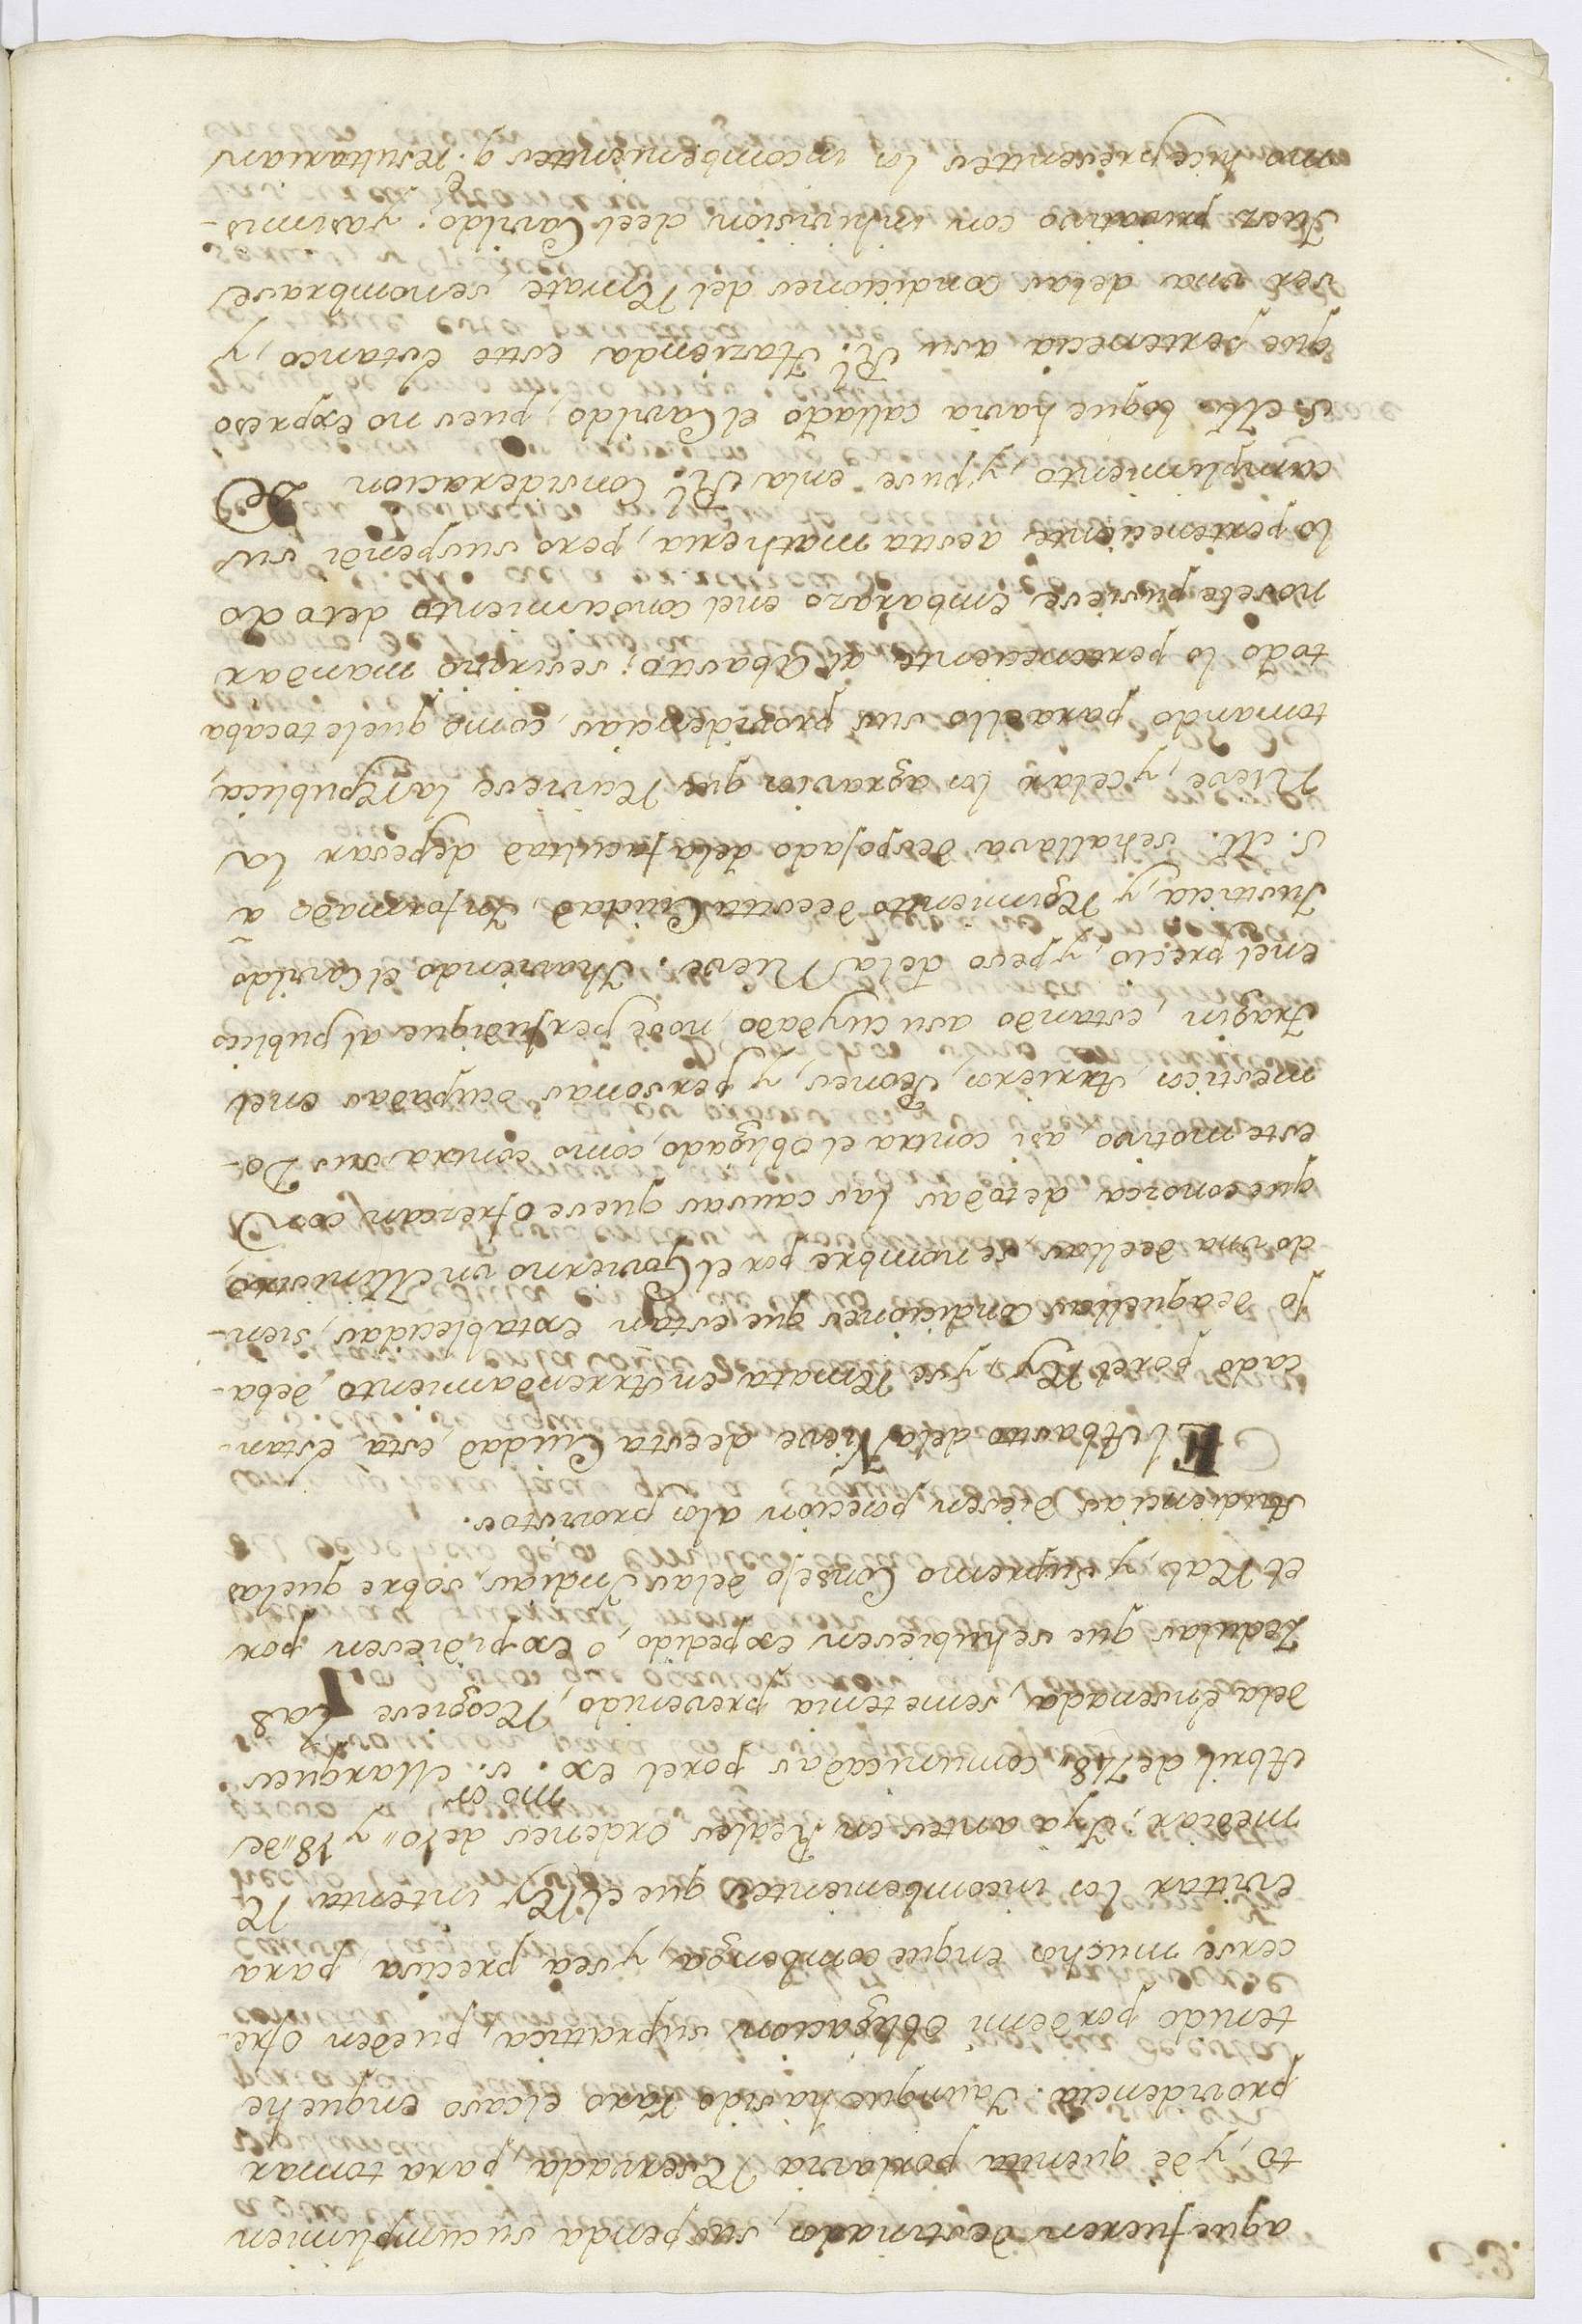 aque fueren destinados, suspenda su cumplimien
to, y de quenta por la via Reservada, para tomar
providencia. Y aunque ha sido raro el caso enque he
tenido por de mi obligacion su practica, pueden ofre-
cerse muchos enque combenga, y sea precisa, para
evittar los incombenientes que el Rey intenta Re
mediar; Y ya antes en Reales ordenes de 10,, y 18,, de
Abril de 748,, comunicadas por el Exmo. sor. Marques
dela Ensenada, seme tenia prevenido, Recogiese las
Zedulas que se hubiesen expedido, o expidiesen por
el Real, y Supremo Consejo delas Indias, sobre quelas
Audiencias diesen posecion alos provistos.
El Abastto dela Nieve deesta Ciudad, esta estan-
cado por el Rey, y se Remata en Arrendamiento, deba-
jo deaquellas Condiciones que estan establecidas, sien-
do vna deellas, se nombre por el Govierno vn Ministro,
que conosca detodas las causas que se ofrezcan, con
este motivo, asi contra el obligado, como contra sus Do-
mesticos, Arrieros, Peones, y personas ocupadas enel
Tragin, estando asu cuydado, nose perjudique al publico
enel precio, y peso dela Nieve. Y haviendo el Cavildo
Justicia, y Regimiento deesta Ciudad, Informado a
S. M. sehallava despojado dela facultad depesar la
Nieve, y celar los agravios que Reciviese la Republica,
tomando para ello sus providencias, como que le tocaba
todo lo perteneciente al Abastto; se sirvio mandar
nosele pusiese embarazo enel conocimiento detodo
lo perteneciente aesta matheria, pero suspendi sus
cumplimiento, y puse enla Rl. Consideracion De
S. M. loque havia callado el Cavildo, pues no expreso
que pertenecia asu Rl. Hazienda este Estanco, y
ser vna delas condiciones del Remate, senombrase
Juez privativo con inhivision deel Cavildo: Y asimis-
mo hice presentes los incombenientes q. resultarian